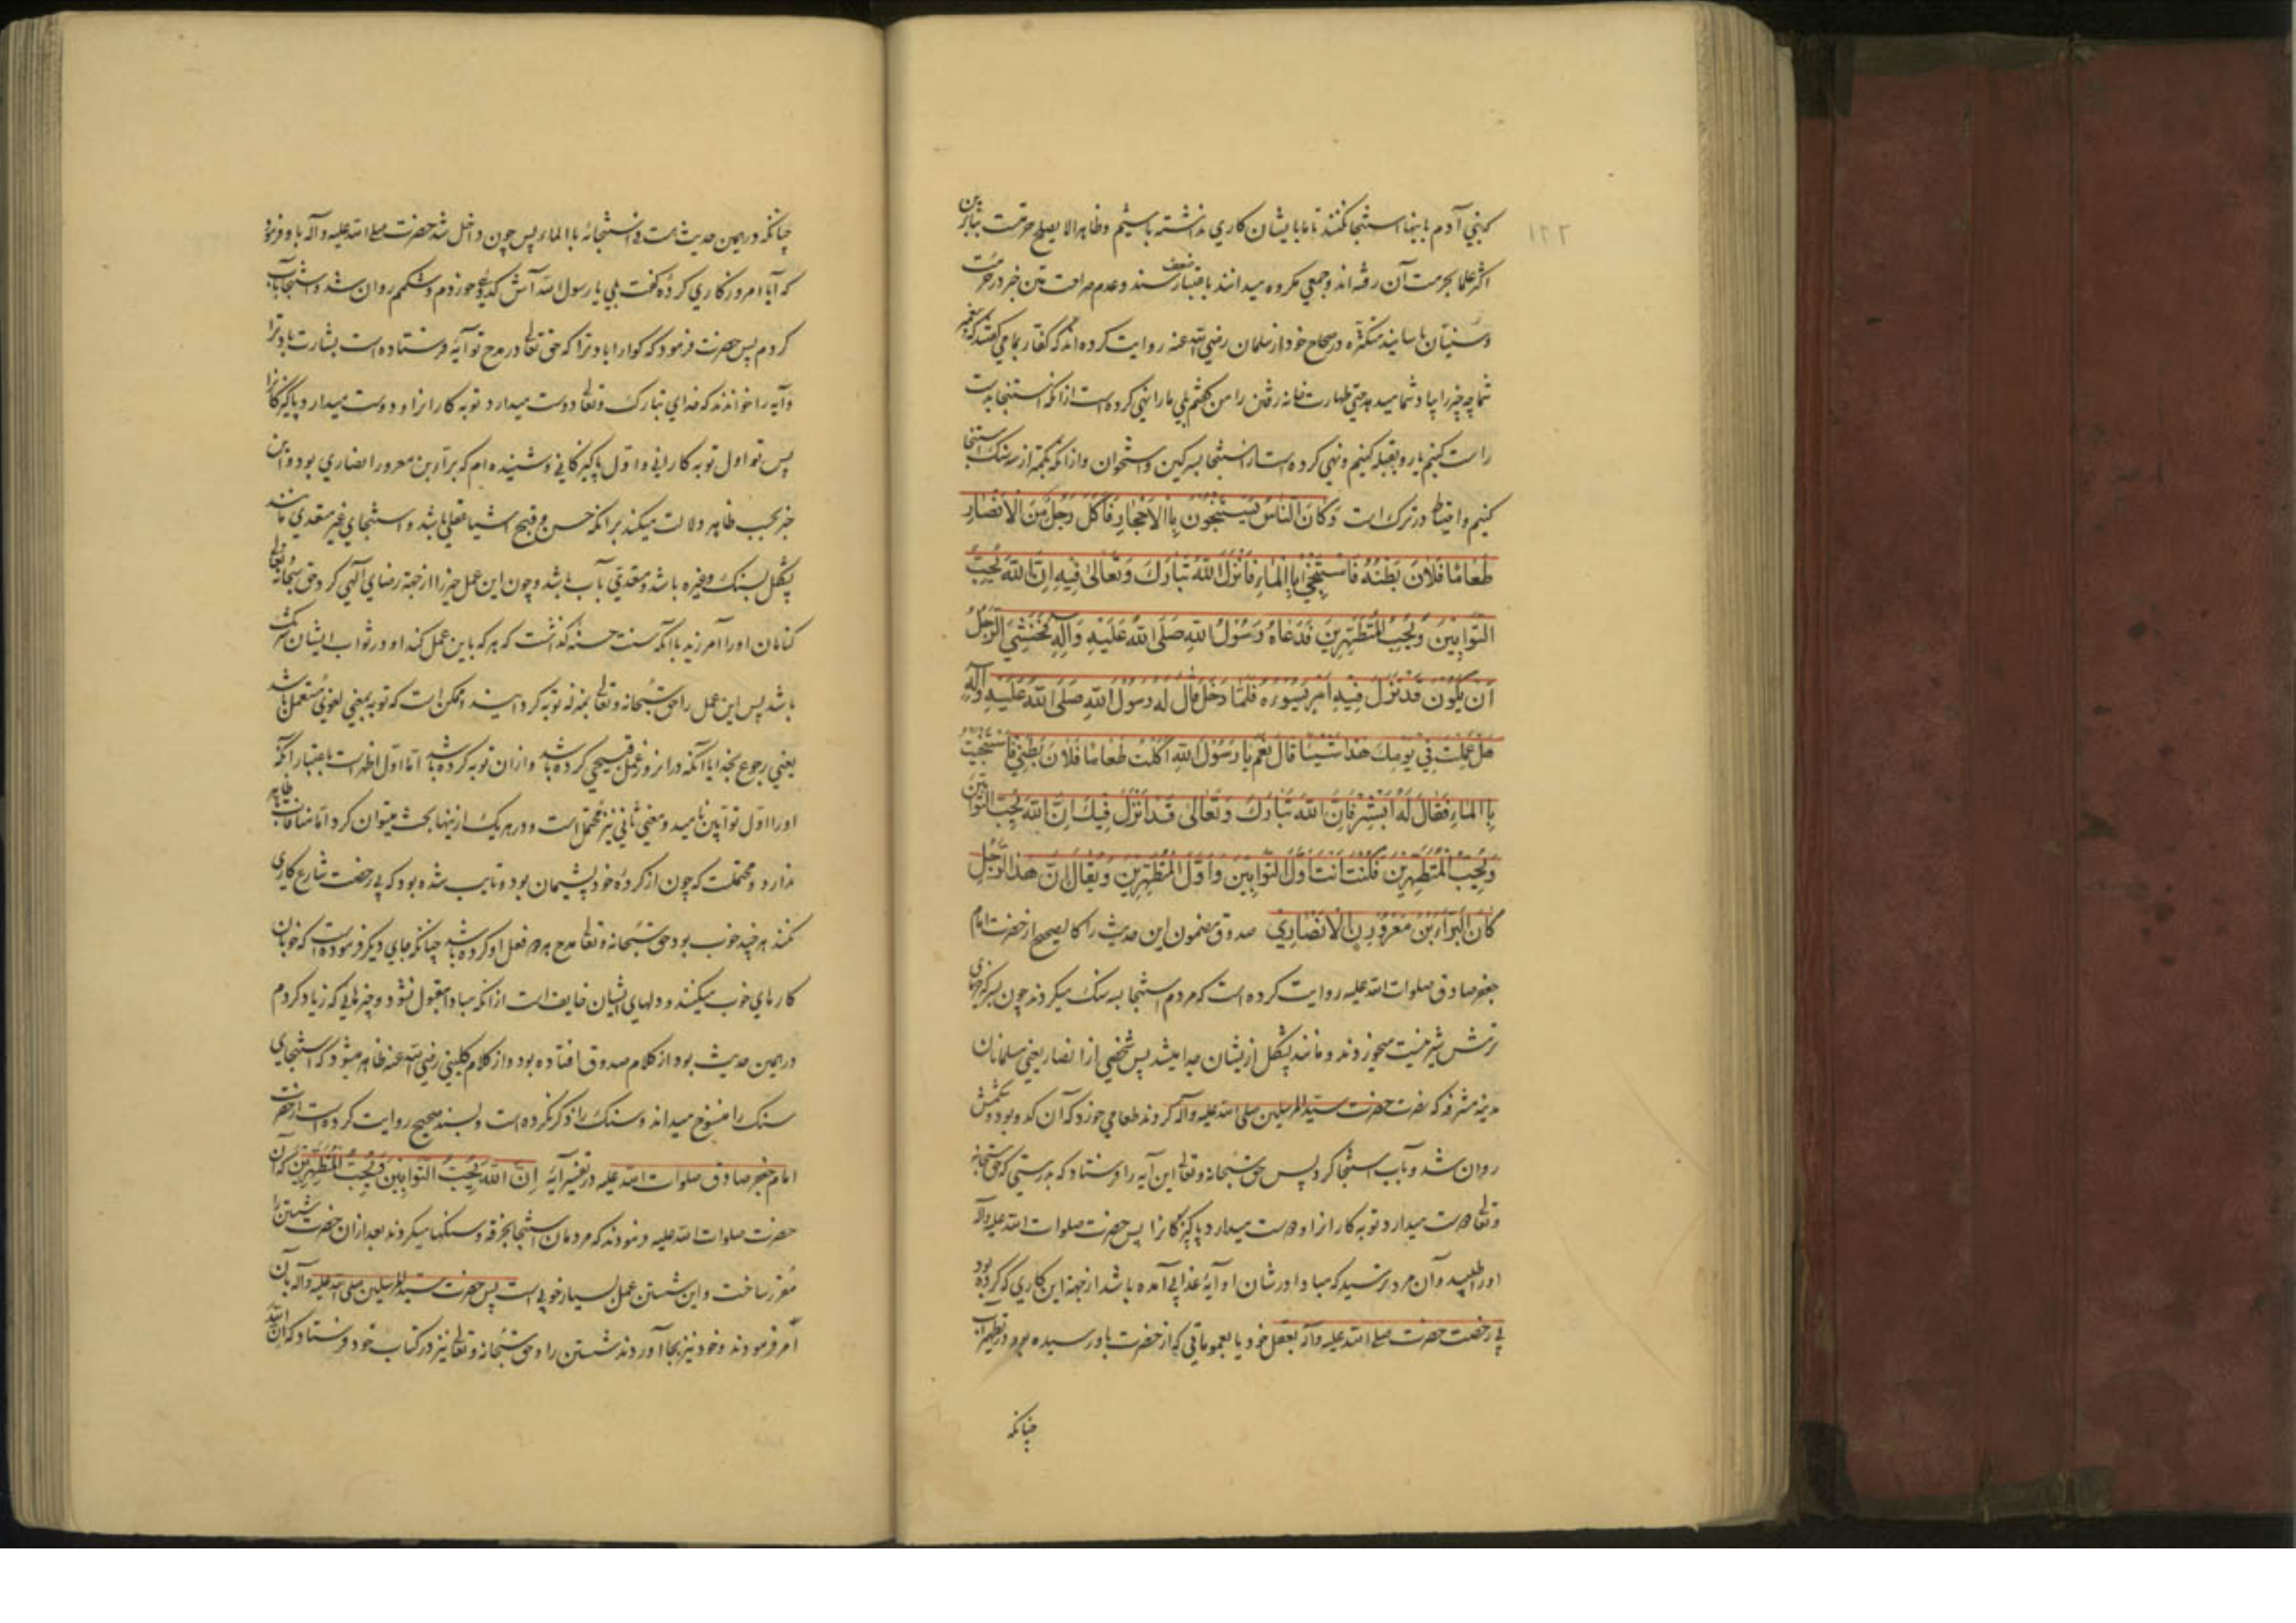 که بنی آدم باینها استنجا نکنند تا ما بایشان کاری نداشته باشیم و ظاهرا لا یصلح حرمتست بنابرین
اکثر علما بحرمت آن رفته‌اند و جمعی مکروه میدانند باعتبار ضعف سند و عدم صراحت متن خبر در حرمت
و سنیان باسانید متکثره در صحاح خود از سلمان رضی الله عنه روایت کرده‌اند که کفار بما می گفتند که پیغمبر
شما چه چیز را بیاد شما میدهد حتی طهارت خانه رفتن را من گفتم بلی ما را نهی کرده است از آنکه استنجا بدست
راست کنیم یا رو بقبله کنیم و نهی کرده است از استنجا بسرکین و استخوان و از آنکه بکمتر از سه سنک استنجا
کنیم و احتیاط در ترک است وَكَانَ النَّاسُ يَسْتَنْجُونَ بِالْاَحْجَارِ فَاَكَلَ رَجُلٌ مِنَ الْاَنْصَارِ
طَعَامًا فَلَانَ بَطْنُهُ فَاسْتَنْجٰى بِالْمَاءِ فَاَنْزَلَ اللّٰهُ تَبَارَكَ وَتَعَالٰى فِيهِ اِنَّ اللّٰهَ يُحِبُّ
التَّوَّابِينَ وَيُحِبُّ الْمُتَطَهِّرِينَ فَدَعَاهُ رَسُولُ اللّٰهِ صَلَّى اللّٰهُ عَلَيْهِ وَآلِهِ فَخَشِيَ الرَّجُلُ
اَنْ يَكُونَ قَدْ نَزَلَ فِيهِ اَمْرٌ يَسُوءُهُ فَلَمَّا دَخَلَ قَالَ لَهُ رَسُولُ اللّٰهِ صَلَّى اللّٰهُ عَلَيْهِ وَآلِهِ
هَلْ عَمِلْتَ فِي يَوْمِكَ هٰذَا شَيْئًا قَالَ نَعَمْ يَا رَسُولَ اللّٰهِ اَكَلْتُ طَعَامًا فَلَانَ بَطْنِي فَاسْتَنْجَيْتُ
بِالْمَاءِ فَقَالَ لَهُ اَبْشِرْ فَاِنَّ اللّٰهَ تَبَارَكَ وَتَعَالٰى قَدْ اَنْزَلَ فِيكَ اِنَّ اللّٰهَ يُحِبُّ التَّوَّابِينَ
وَيُحِبُّ الْمُتَطَهِّرِينَ فَكُنْتَ اَنْتَ اَوَّلَ التَّوَّابِينَ وَاَوَّلَ الْمُتَطَهِّرِينَ وَيُقَالُ اِنَّ هٰذَا الرَّجُلَ
كَانَ الْبَرَاءَ بْنَ مَعْرُورٍ الْاَنْصَارِيَّ صدوق مضمون این حدیث را کالصحیح از حضرت امام
جعفر صادق صلوات الله علیه روایت کرده است که مردم استنجا بسنک میکردند چون بسر که خرمای
ترش شیر نیست میخوردند و مانند پشکل ازیشان جدا میشد پس شخصی از انصار یعنی مسلمانان
مدینه مشرفه که نصرت حضرت سید المرسلین صلی الله علیه و آله کردند طعامی خورد که آن کدو بود و شکمش
روان شد و بآب استنجا کرد پس حق سبحانه و تعالی این آیه را فرستاد که بدرستی که حق سبحانه
و تعالی دوست میدارد توبه کارانرا و دوست میدارد پاکیزکانرا پس حضرت صلوات الله علیه و آله
او را طلبید و آن مرد ترسید که مبادا در شان او آیهٔ عذابی آمده باشد از جهة این کاری که کرده بود
بی رخصت حضرت صلی الله علیه و آله بعقل خود یا بعموماتی که از حضرت باو رسیده بود در تطهیر آب
چنانکه
۱۲۲
چنانکه در همین حدیث است و استنجائه بالماء پس چون داخل شد حضرت صلی الله علیه و آله باو فرمود
که آیا امروز کاری کردهٔ گفت بلی یا رسول الله آش کدوئی خوردم و شکمم روان شد و استنجا بآب
کردم پس حضرت فرمود که کوارا باد ترا که حق تعالی در مدح تو آیهٔ فرستاده است بشارت باد ترا
و آیه را خواندند که خدای تبارک و تعالی دوست میدارد توبه کارانرا و دوست میدارد پاکیزکانرا
پس تو اول توبه کارانی و اول پاکیزکانی و شنیده‌ام که براء بن معرور انصاری بود و این
خبر بحسب ظاهر دلالت میکند بر آنکه حسن و قبح اشیا عقلی باشد و استنجای غیر متعدی مانند
پشکل بسنک و غیره باشد و متعدی بآب باشد و چون این عمل خیر را از جهة رضای الهی کرد حق سبحانه و تعالی
کناهان او را آمرزید با آنکه سنت حسنه گذاشت که هر که باین عمل کند او در ثواب ایشان شریک
باشد پس این عمل را حق سبحانه و تعالی بمنزله توبه کردانیده و ممکن است که توبه بمعنی لغوی مستعمل باشد
یعنی رجوع بخدا یا آنکه در آنروز عمل قبیحی کرده باشد و از آن توبه کرده باشد اما اول اظهر است باعتبار آنکه
او را اول توابین نامید و معنی ثانی نیز محتمل است و در هر یک ازینها بحث میتوان کرد اما منافات ظاهر
ندارد و محتملست که چون از کردهٔ خود پشیمان بود و تایب شده بود که بی رخصت شارع کاری
نکند هر چند خوب بود حق سبحانه و تعالی مدح هر دو فعل او کرده باشد چنانکه جای دیگر فرموده است که خوبان
کارهای خوب میکنند و دلهای ایشان خایف است از آنکه مبادا مقبول نشود و چیزهایی که زیاد کردم
در همین حدیث بود از کلام صدوق افتاده بود و از کلام کلینی رضی الله عنه ظاهر میشود که استنجای
سنک را منسوخ میداند و سنک را ذکر نکرده است و بسند صحیح روایت کرده است از حضرت
امام جعفر صادق صلوات الله علیه در تفسیر آیهٔ اِنَّ اللّٰهَ يُحِبُّ التَّوَّابِينَ وَيُحِبُّ الْمُتَطَهِّرِينَ که آن
حضرت صلوات الله علیه فرمودند که مردمان استنجا بخرقه و سنکها میکردند بعد از آن حضرت شستن را
مقرر ساخت و این شستن عمل بسیار خوبی است پس حضرت سید المرسلین صلی الله علیه و آله بآن
امر فرمودند و خود نیز بجا آوردند شستن را و حق سبحانه و تعالی نیز در کتاب خود فرستاد که ان الله